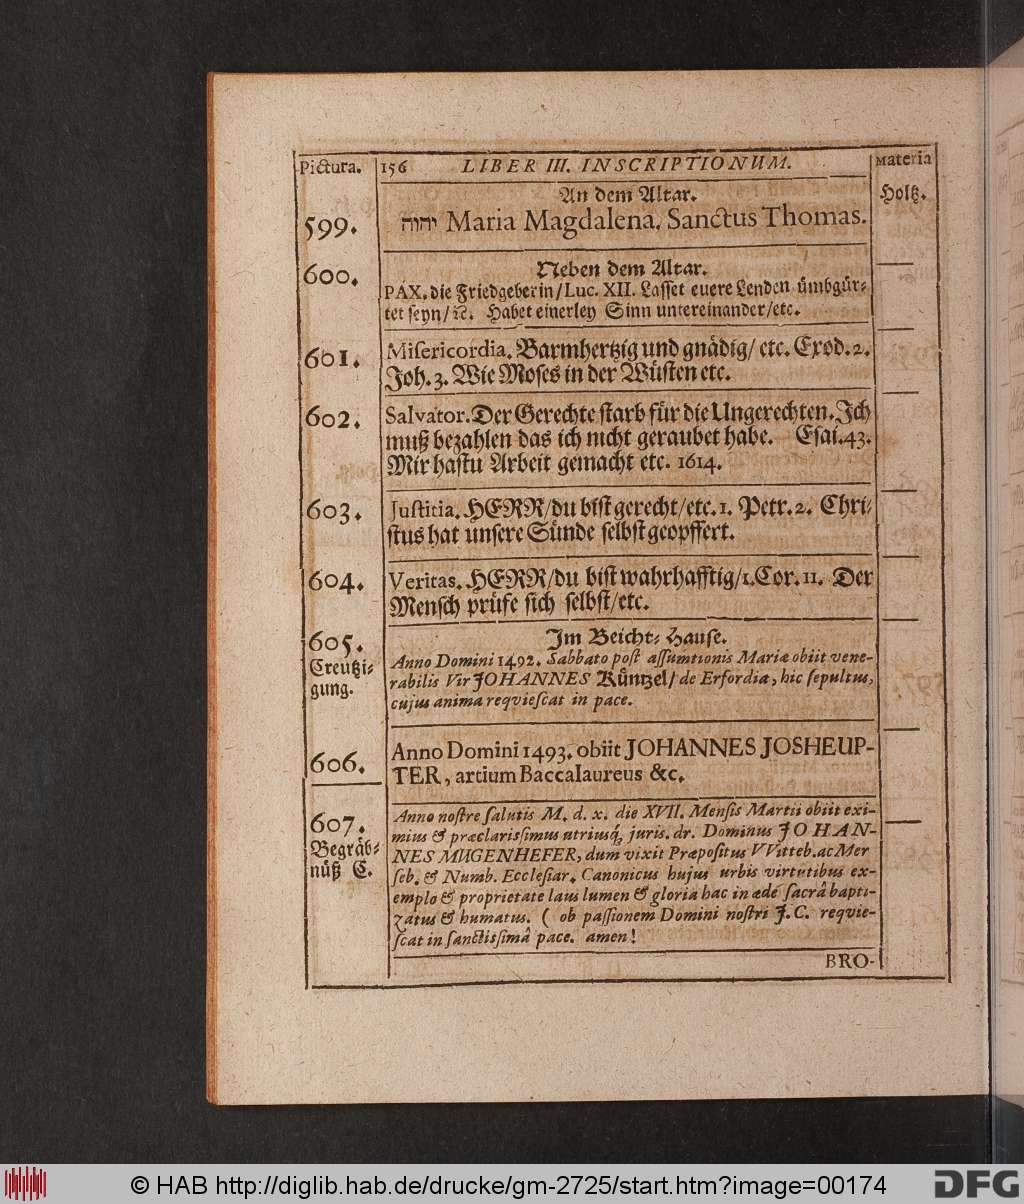 Pictura. 156 LIBER III. INSCRIPTIONUM. Materia
An dem Altar. Holtz.
599. יהוה Maria Magdalena. Sanctus Thomas.
600. Neben dem Altar.
PAX. die Friedgeberin/Luc. XII. Lasset euere Lenden ümbgür-
tet seyn/ ꝛc. Habet einerley Sinn untereinander/etc.
601. Misericordia. Barmhertzig und gnädig/ etc. Exod. 2.
Joh. 3. Wie Moses in der Wüsten etc.
602. Salvator. Der Gerechte starb für die Ungerechten. Ich
muß bezahlen das ich nicht geraubet habe. Esai. 43.
Mir hastu Arbeit gemacht etc. 1614.
603. Justitia. HERR/du bist gerecht/etc. 1. Petr. 2. Chri-
stus hat unsere Sünde selbst geopffert.
604. Veritas. HERR/du bist wahrhafftig/1. Cor. 11. Der
Mensch prüfe sich selbst/etc.
605. Im Beicht-Hause.
Creutzi-
gung.
Anno Domini 1492. Sabbato post assumtionis Mariæ obiit vene-
rabilis Vir JOHANNES Küntzel/ de Erfordia, hic sepultus,
cujus anima reqviescat in pace.
606. Anno Domini 1493. obiit JOHANNES JOSHEUP-
TER, artium Baccalaureus &c.
607.
Begräb-
nüß C.
Anno nostre salutis M. d. x. die XVII. Mensis Martii obiit exi-
mius & præclarissimus utriusq́; juris. dr. Dominus JOHAN-
NES MUGENHEFER, dum vixit Præpositus VVitteb. ac Mer
seb. & Numb. Ecclesiar. Canonicus hujus urbis virtutibus ex-
emplo & proprietate laus lumen & gloria hac in æde sacrâ bapti-
zatus & humatus. ( ob passionem Domini nostri J. C. reqvie-
scat in sanctissimâ pace. amen!
BRO-
© HAB http://diglib.hab.de/drucke/gm-2725/start.htm?image=00174
DFG